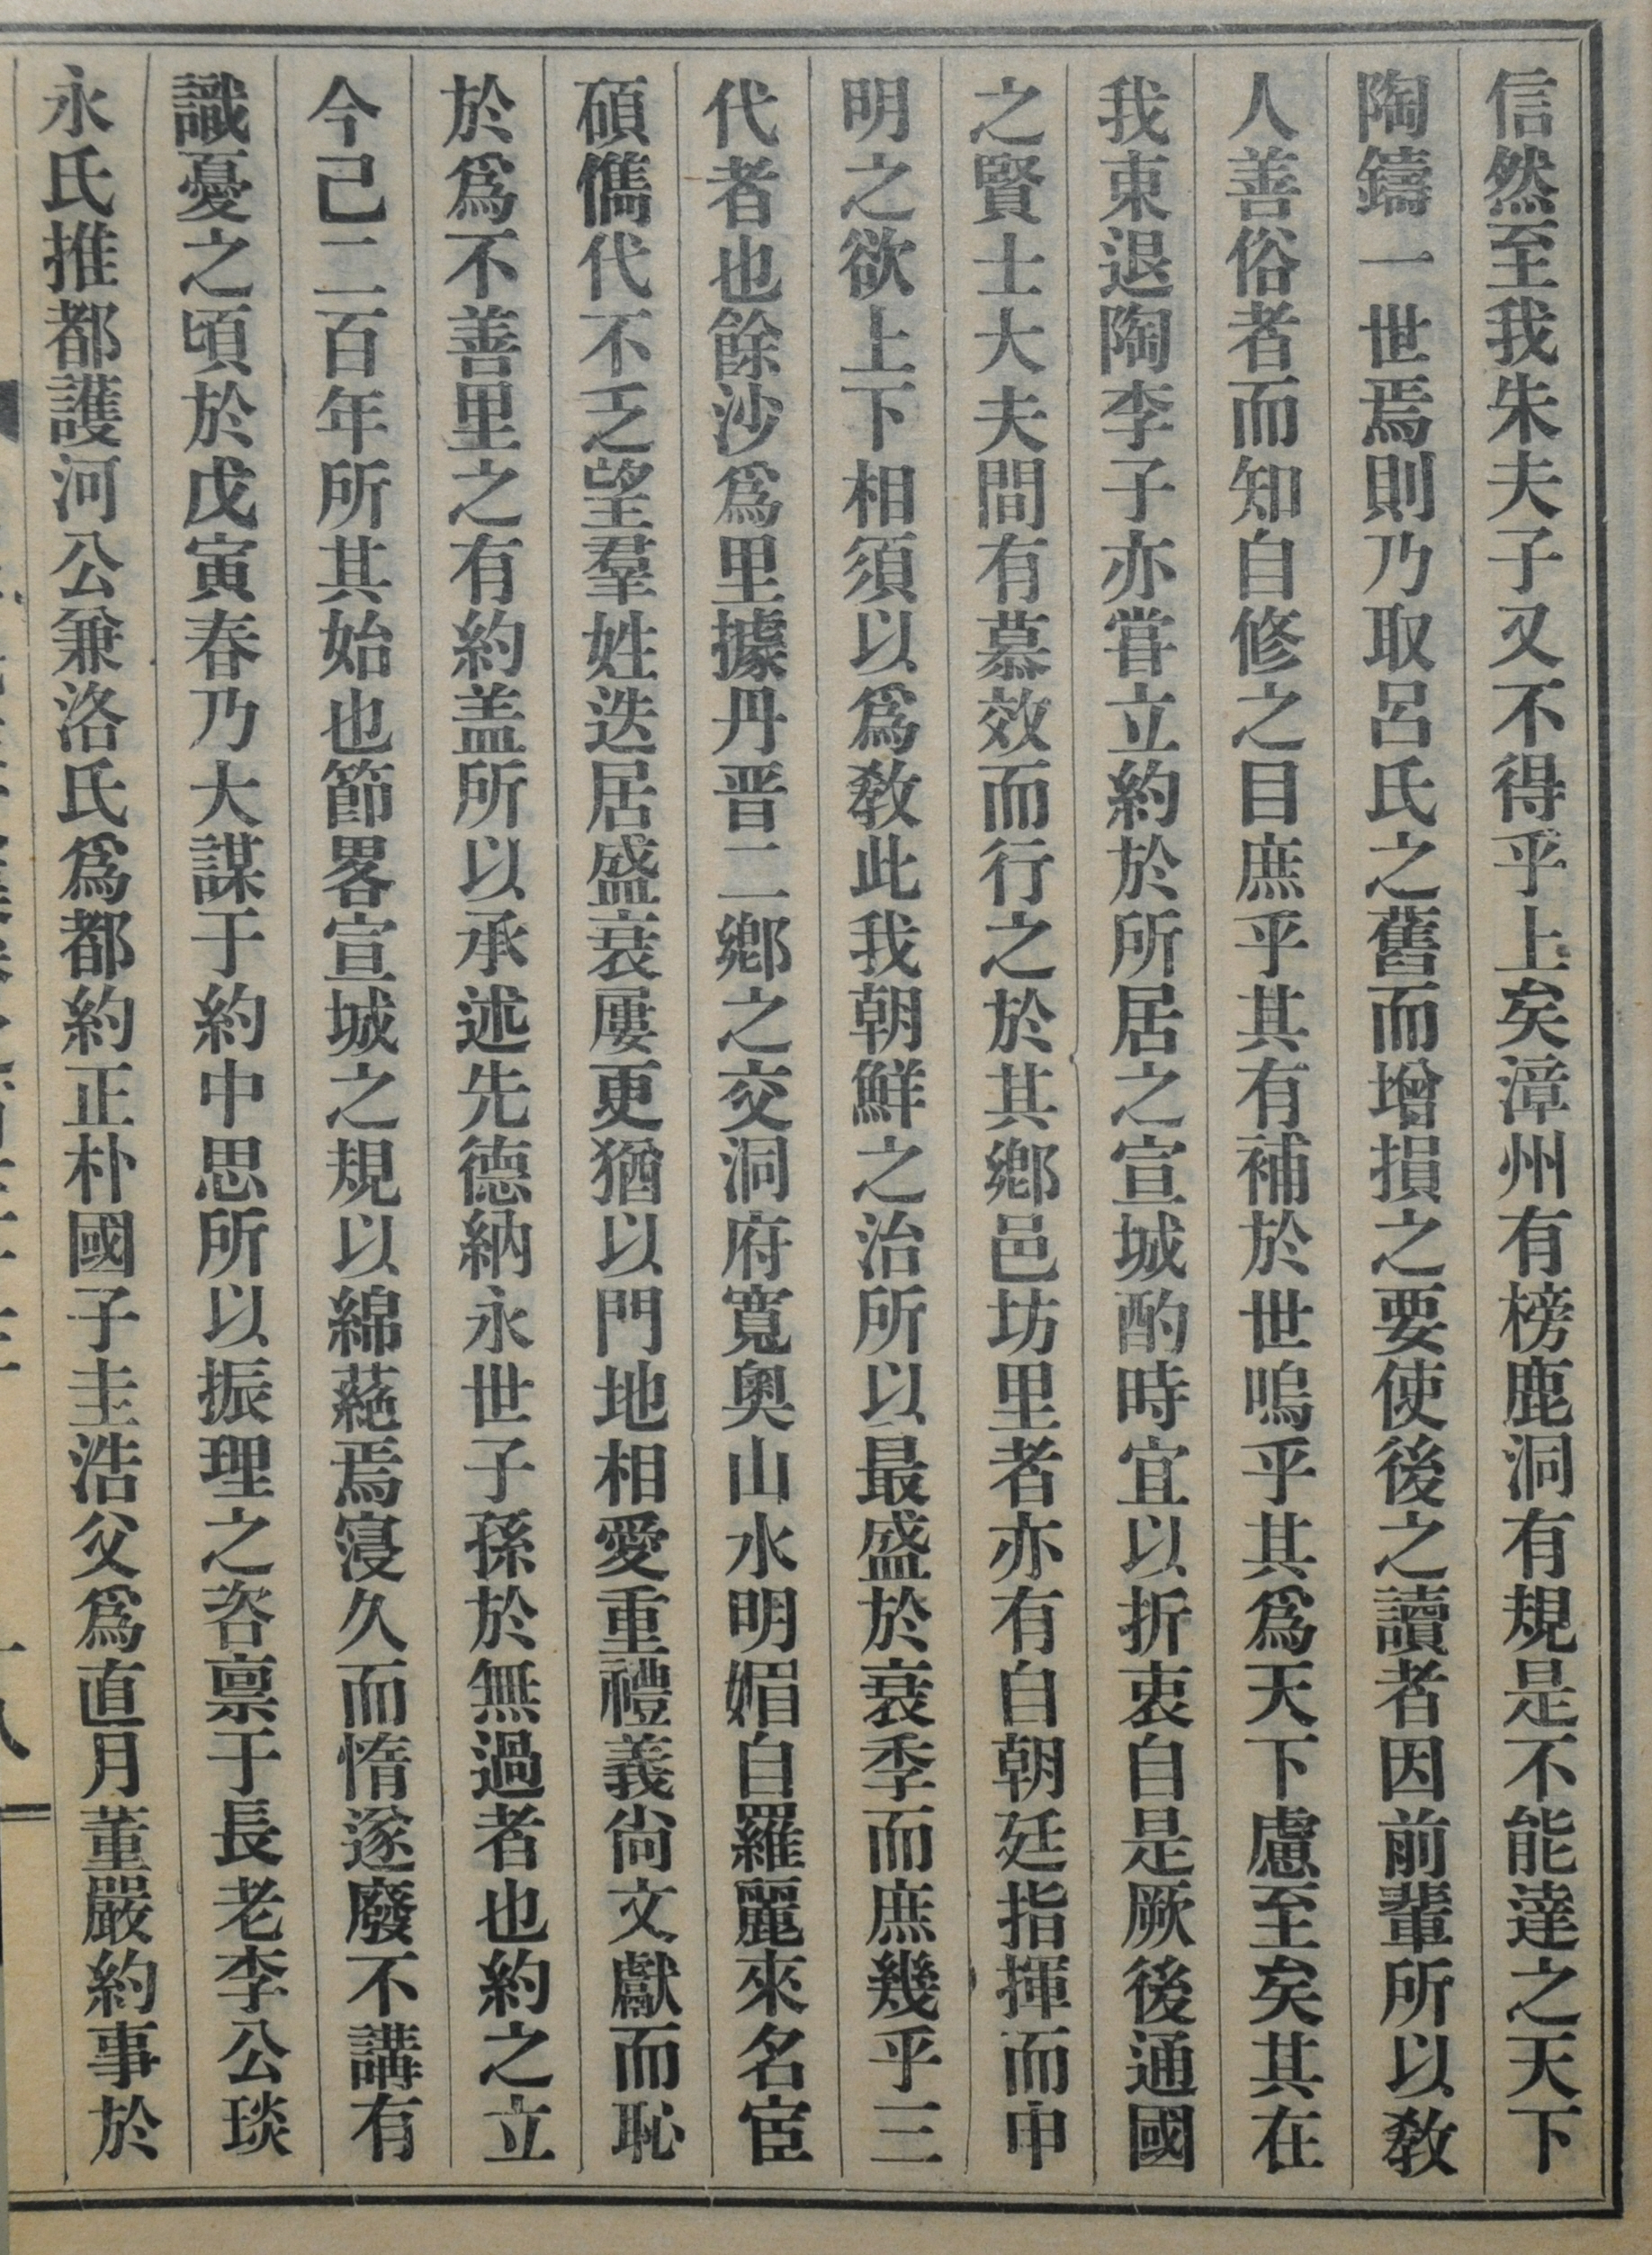 信然至我朱夫子又不得乎上矣漳州有榜鹿洞有規是不能達之天下
陶鑄一世焉則乃取呂氏之舊而增損之要使後之讀者因前輩所以敎
人善俗者而知自修之目庶乎其有補於世嗚乎其爲天下慮至矣其在
我東退陶李子亦甞立約於所居之宣城酌時宜以折衷自是厥後通國
之賢士大夫間有慕效而行之於其鄕邑坊里者亦有自朝廷指揮而申
明之欲上下相須以爲敎此我朝鮮之治所以最盛於衰季而庶幾乎三
代者也餘沙爲里據丹晋二鄕之交洞府寬奧山水明媚自羅麗來名宦
碩儁代不乏望羣姓迭居盛衰屢更猶以門地相愛重禮義尙文獻而恥
於爲不善里之有約盖所以承述先德納永世子孫於無過者也約之立
今己二百年所其始也節畧宣城之規以綿蕝焉寖久而惰遂廢不講有
識憂之頃於戊寅春乃大謀于約中思所以振理之咨禀于長老李公琰
永氏推都護河公兼洛氏爲都約正朴國子圭浩父爲直月董嚴約事於